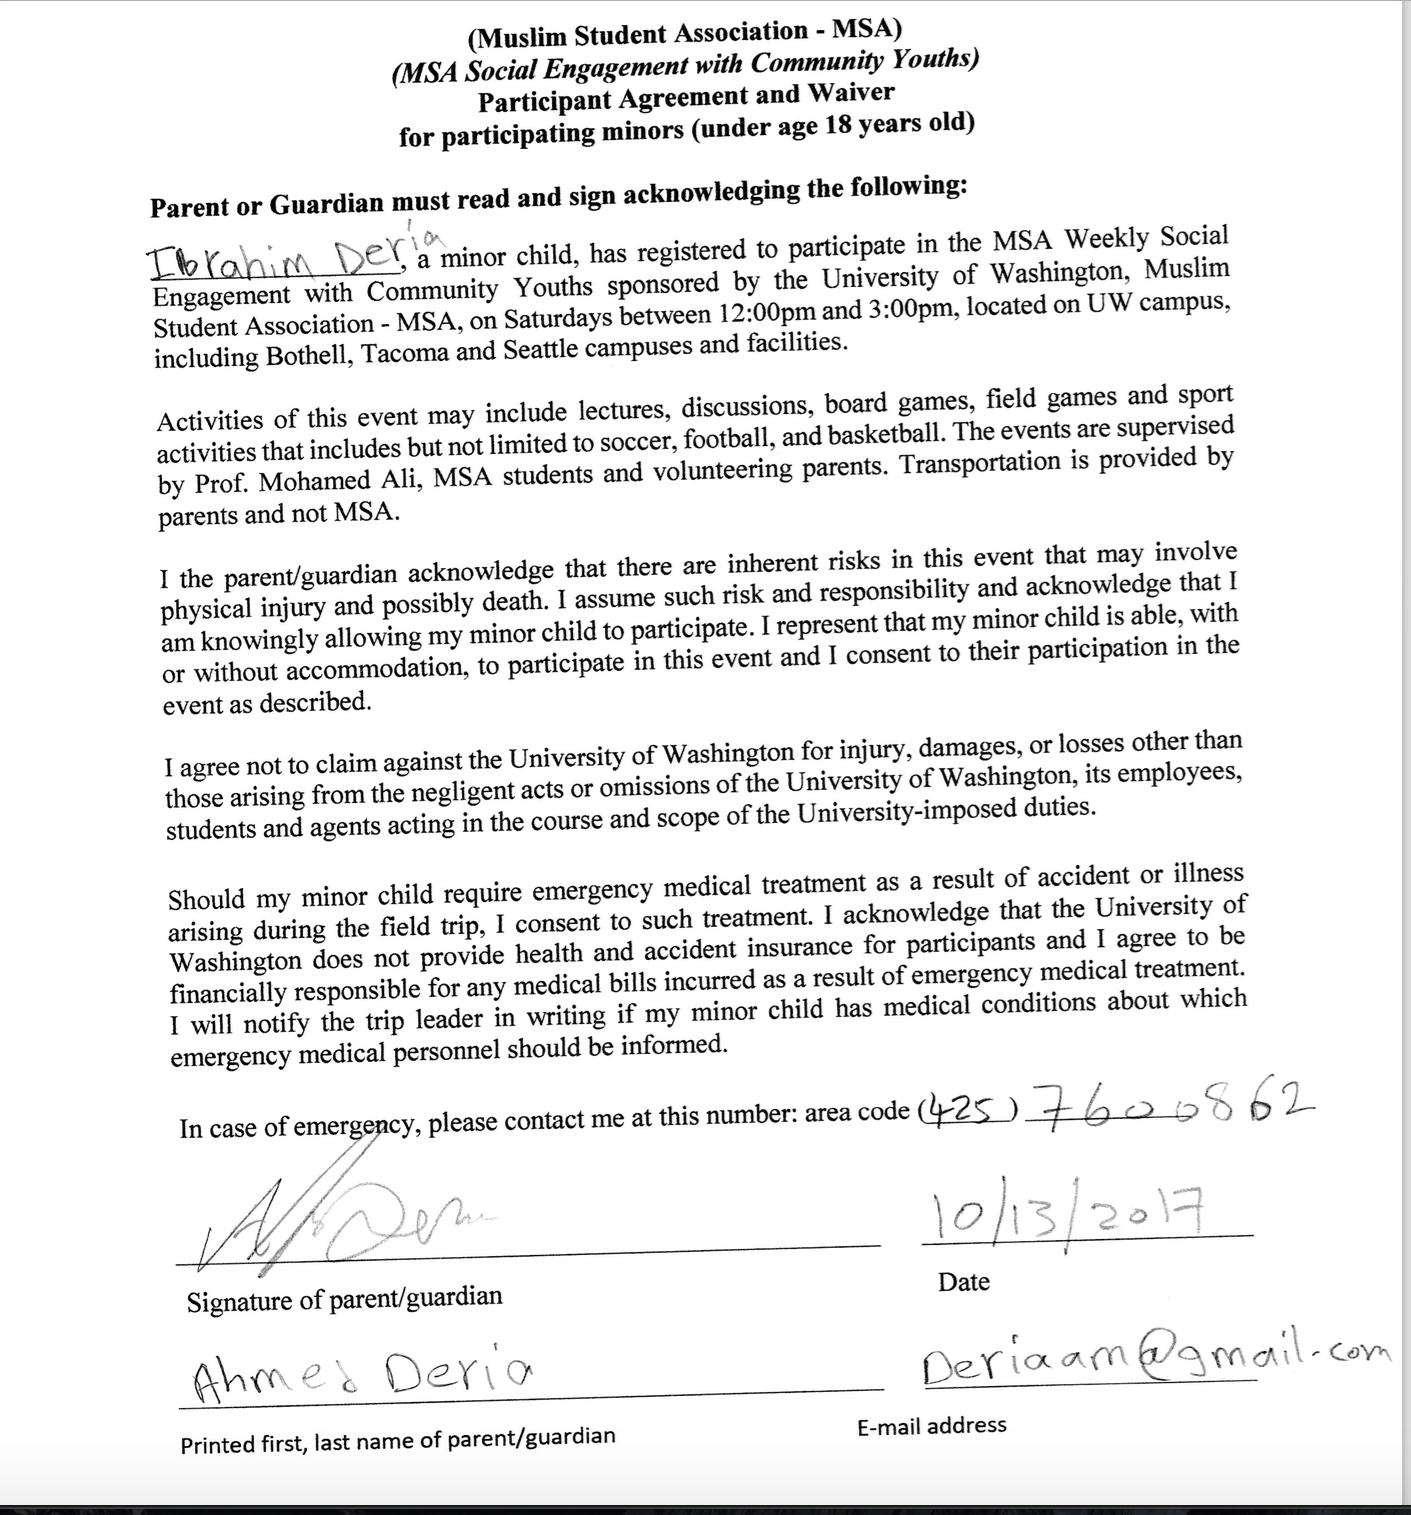 (Muslim Student Association - MSA)
(MSA Social Engagement with Community Youths)
Participant Agreement and Waiver
for participating minors (under age 18 years old)
Parent or Guardian must read and sign acknowledging the following:
Ibrahim Deria, a minor child, has registered to participate in the MSA Weekly Social
Engagement with Community Youths sponsored by the University of Washington, Muslim
Student Association - MSA, on Saturdays between 12:00pm and 3:00pm, located on UW campus,
including Bothell, Tacoma and Seattle campuses and facilities.
Activities of this event may include lectures, discussions, board games, field games and sport
activities that includes but not limited to soccer, football, and basketball. The events are supervised
by Prof. Mohamed Ali, MSA students and volunteering parents. Transportation is provided by
parents and not MSA.
I the parent/guardian acknowledge that there are inherent risks in this event that may involve
physical injury and possibly death. I assume such risk and responsibility and acknowledge that I
am knowingly allowing my minor child to participate. I represent that my minor child is able, with
or without accommodation, to participate in this event and I consent to their participation in the
event as described.
I agree not to claim against the University of Washington for injury, damages, or losses other than
those arising from the negligent acts or omissions of the University of Washington, its employees,
students and agents acting in the course and scope of the University-imposed duties.
Should my minor child require emergency medical treatment as a result of accident or illness
arising during the field trip, I consent to such treatment. I acknowledge that the University of
Washington does not provide health and accident insurance for participants and I agree to be
financially responsible for any medical bills incurred as a result of emergency medical treatment.
I will notify the trip leader in writing if my minor child has medical conditions about which
emergency medical personnel should be informed.
In case of emergency, please contact me at this number: area code (425) 7600862
10/13/2017
Signature of parent/guardian Date
Ahmed Deria Deriaam@gmail.com
Printed first, last name of parent/guardian E-mail address